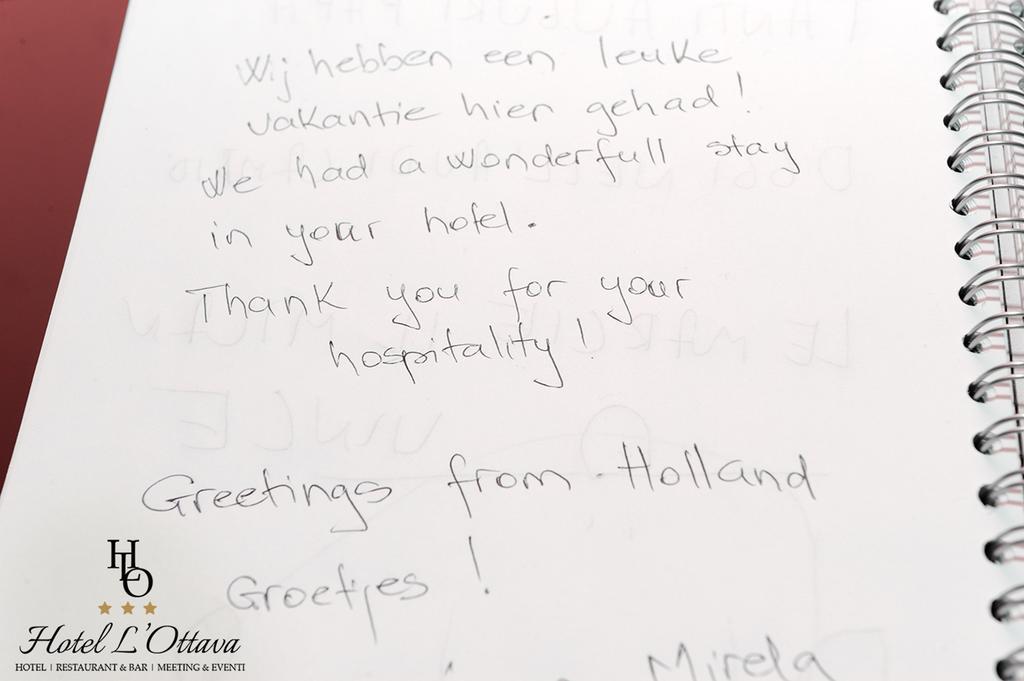 Wij hebben een leuke
vakantie hier gehad!
We had a wonderfull stay
in your hotel.
Thank you for your
hospitality!
Greetings from Holland
Groetjes!
Mirela
HLO
Hotel L'Ottava
HOTEL | RESTAURANT & BAR | MEETING & EVENTI